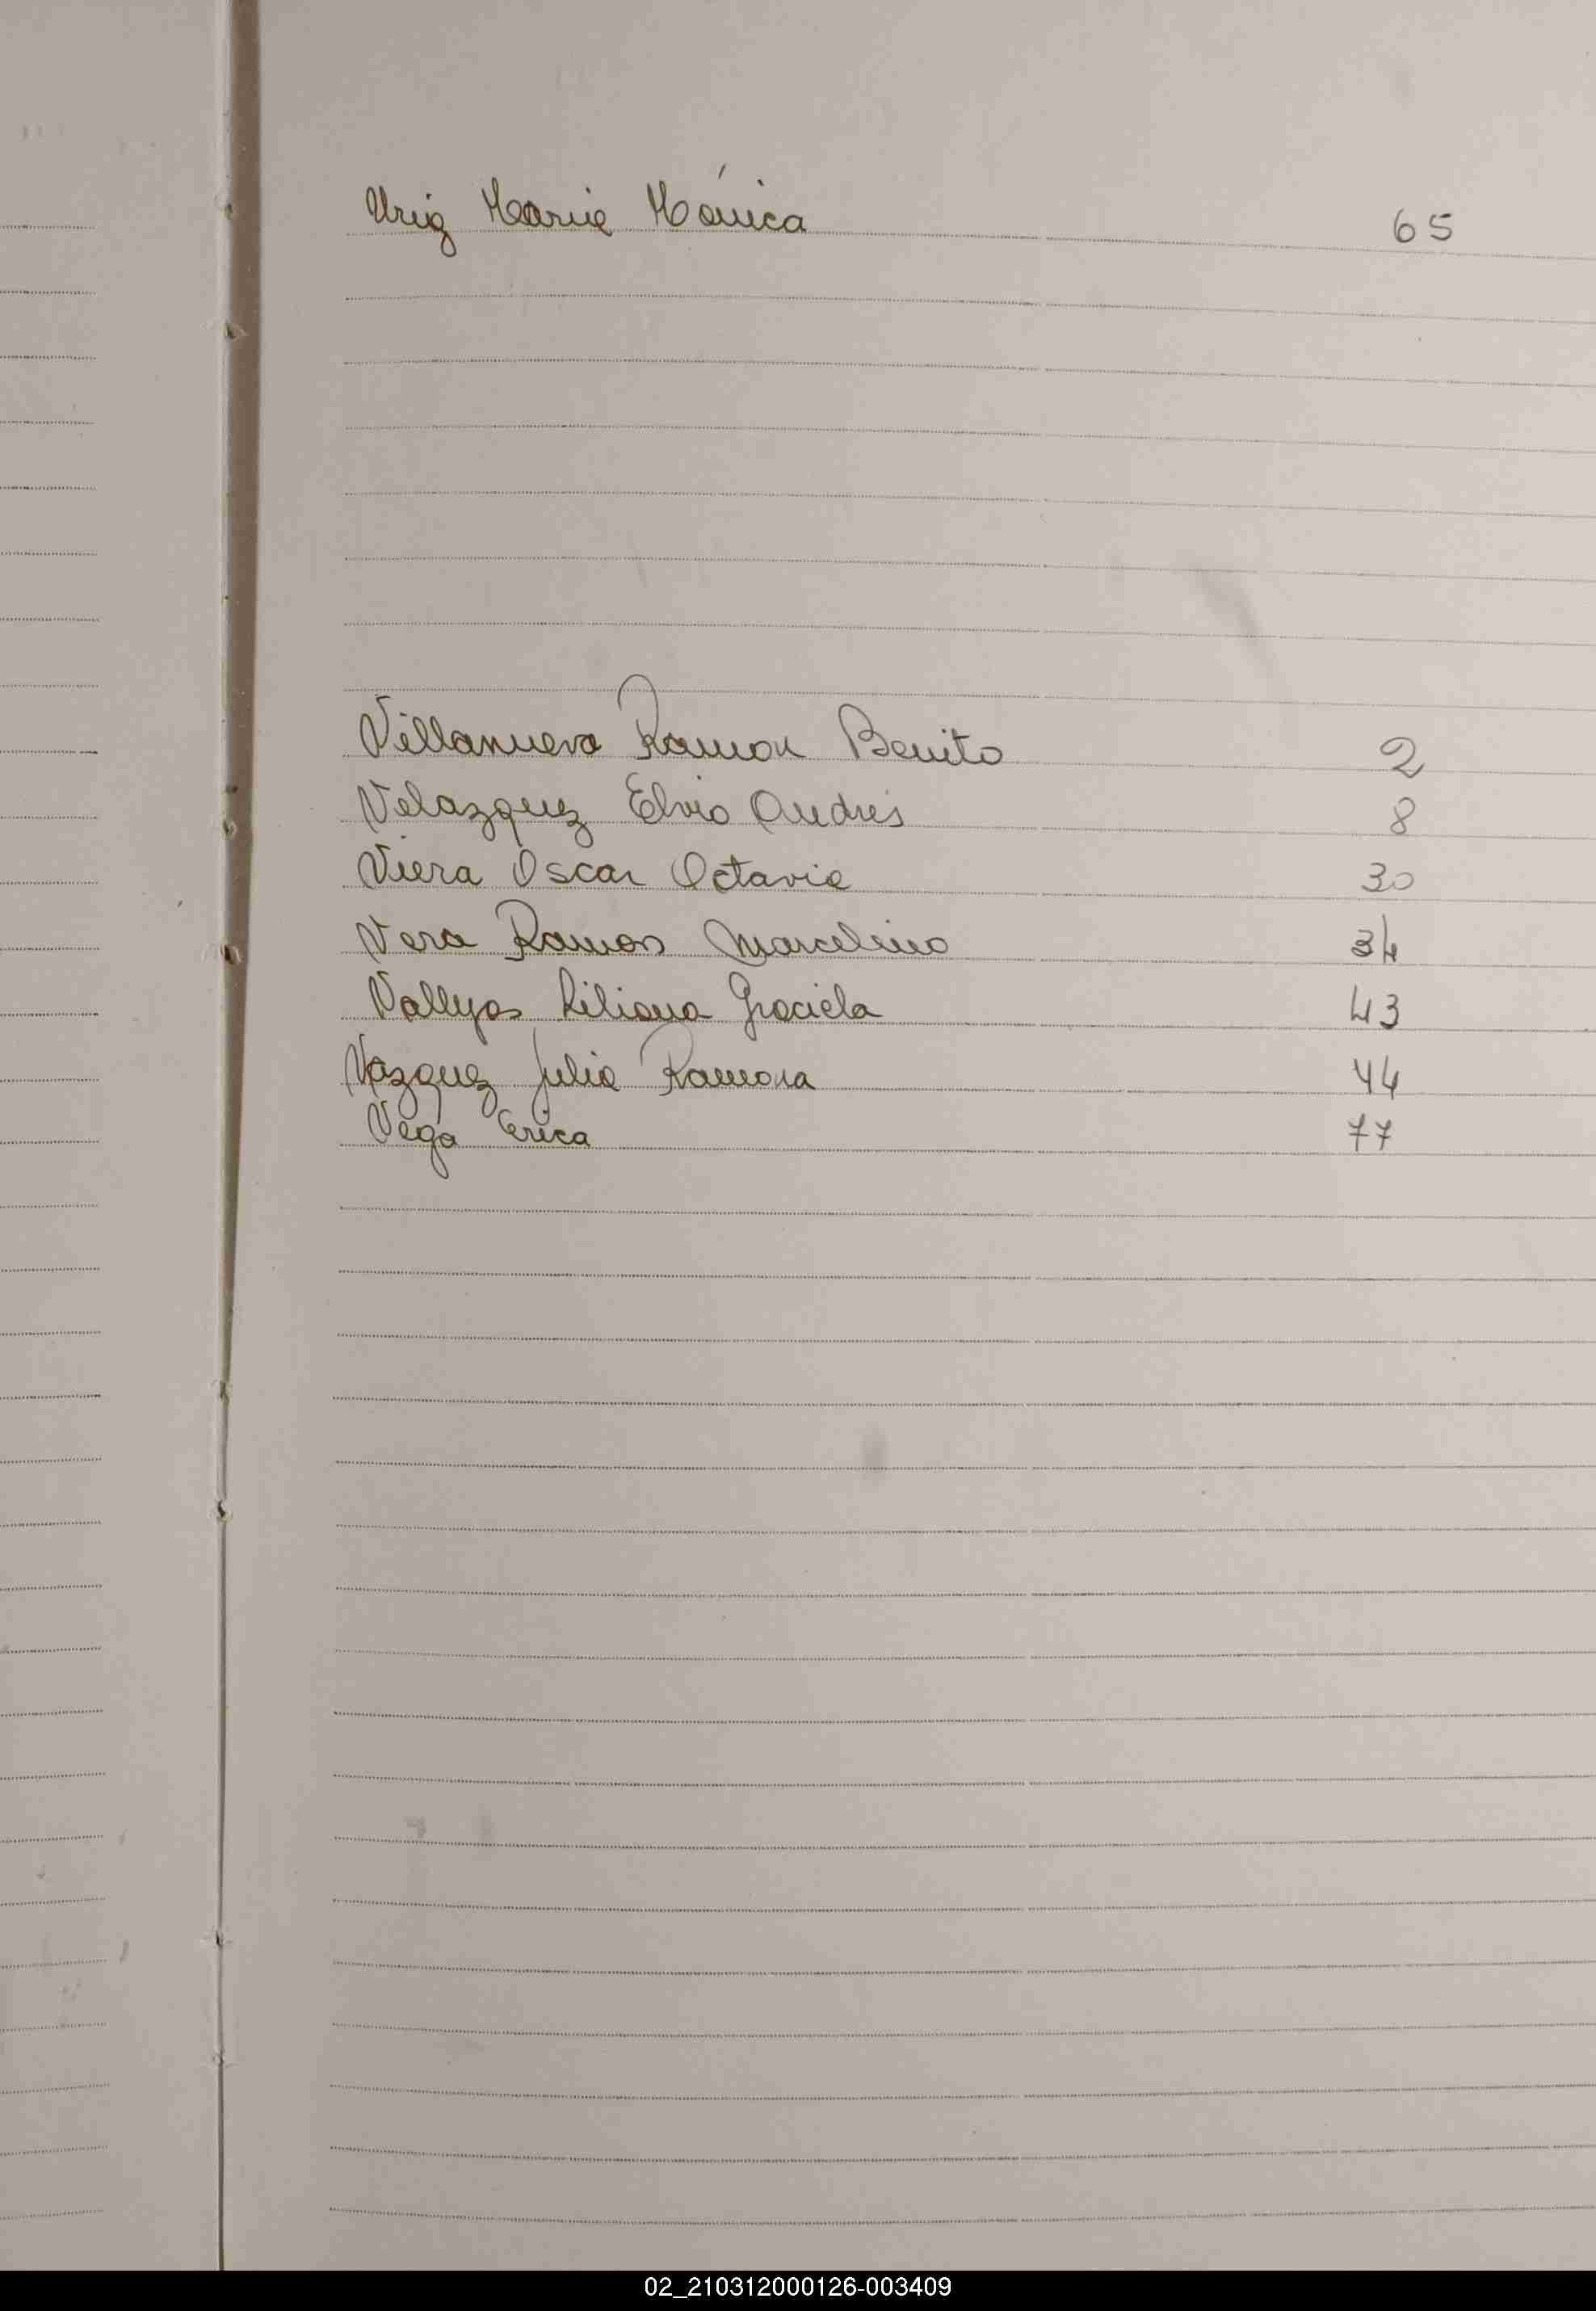 Uriz Maria Mónica 65
Villanueva Ramon Benito 2
Velazquez Elvio Andrés 8
Viera Oscar Octavio 30
Vera Ramos Marcelino 34
Vallejos Liliana Graciela 43
Vazquez Julia Ramona 44
Vega Erica 77
02_210312000126-003409